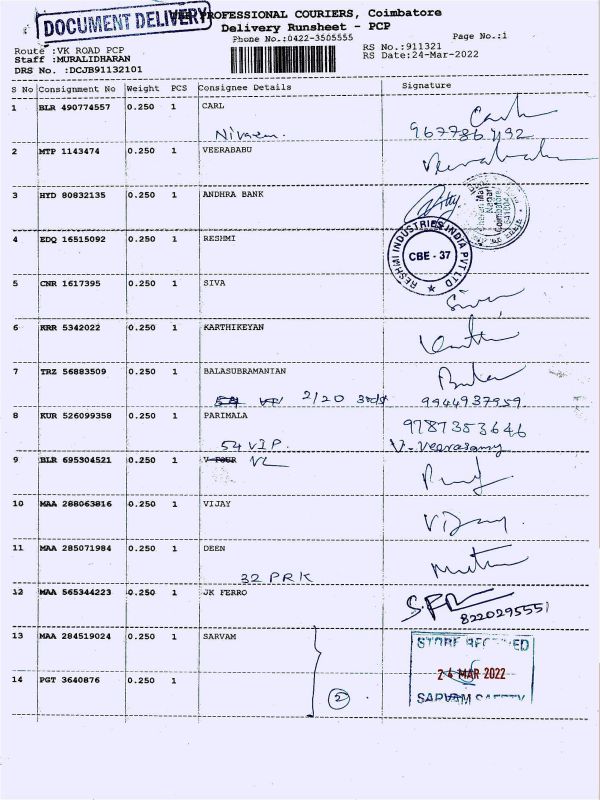 DOCUMENT DELIVERY
PROFESSIONAL COURIERS, Coimbatore
Delivery Runsheet - PCP
Phone No.:0422-3505555
Page No.:1
Route :VK ROAD PCP
RS No.:911321
Staff :MURALIDHARAN
RS Date:24-Mar-2022
DRS No. :DCJB91132101
S No Consignment No Weight PCS Consignee Details Signature
1 BLR 490774557 0.250 1 CARL
9677867192
2 MTP 1143474 0.250 1 VEERABABU Veerababu
3 HYD 80832135 0.250 1 ANDHRA BANK
Coimbatore
RESHMI INDUSTRIES INDIA PVT LTD
CBE - 37
4 EDQ 16515092 0.250 1 RESHMI
5 CNR 1617395 0.250 1 SIVA
Siva
6 KRR 5342022 0.250 1 KARTHIKEYAN
7 TRZ 56883509 0.250 1 BALASUBRAMANIAN
2/20 9944937959
8 KUR 526099358 0.250 1 PARIMALA 9787353646
54 VIP V. Veerasamy
9 BLR 695304521 0.250 1 VL
10 MAA 288063816 0.250 1 VIJAY
Vijay
11 MAA 285071984 0.250 1 DEEN
32 PRK
12 MAA 565344223 0.250 1 JK FERRO
8220295551
13 MAA 284519024 0.250 1 SARVAM
STORE RECEIVED
24 MAR 2022
14 PGT 3640876 0.250 1
2
SARVAM SAFETY